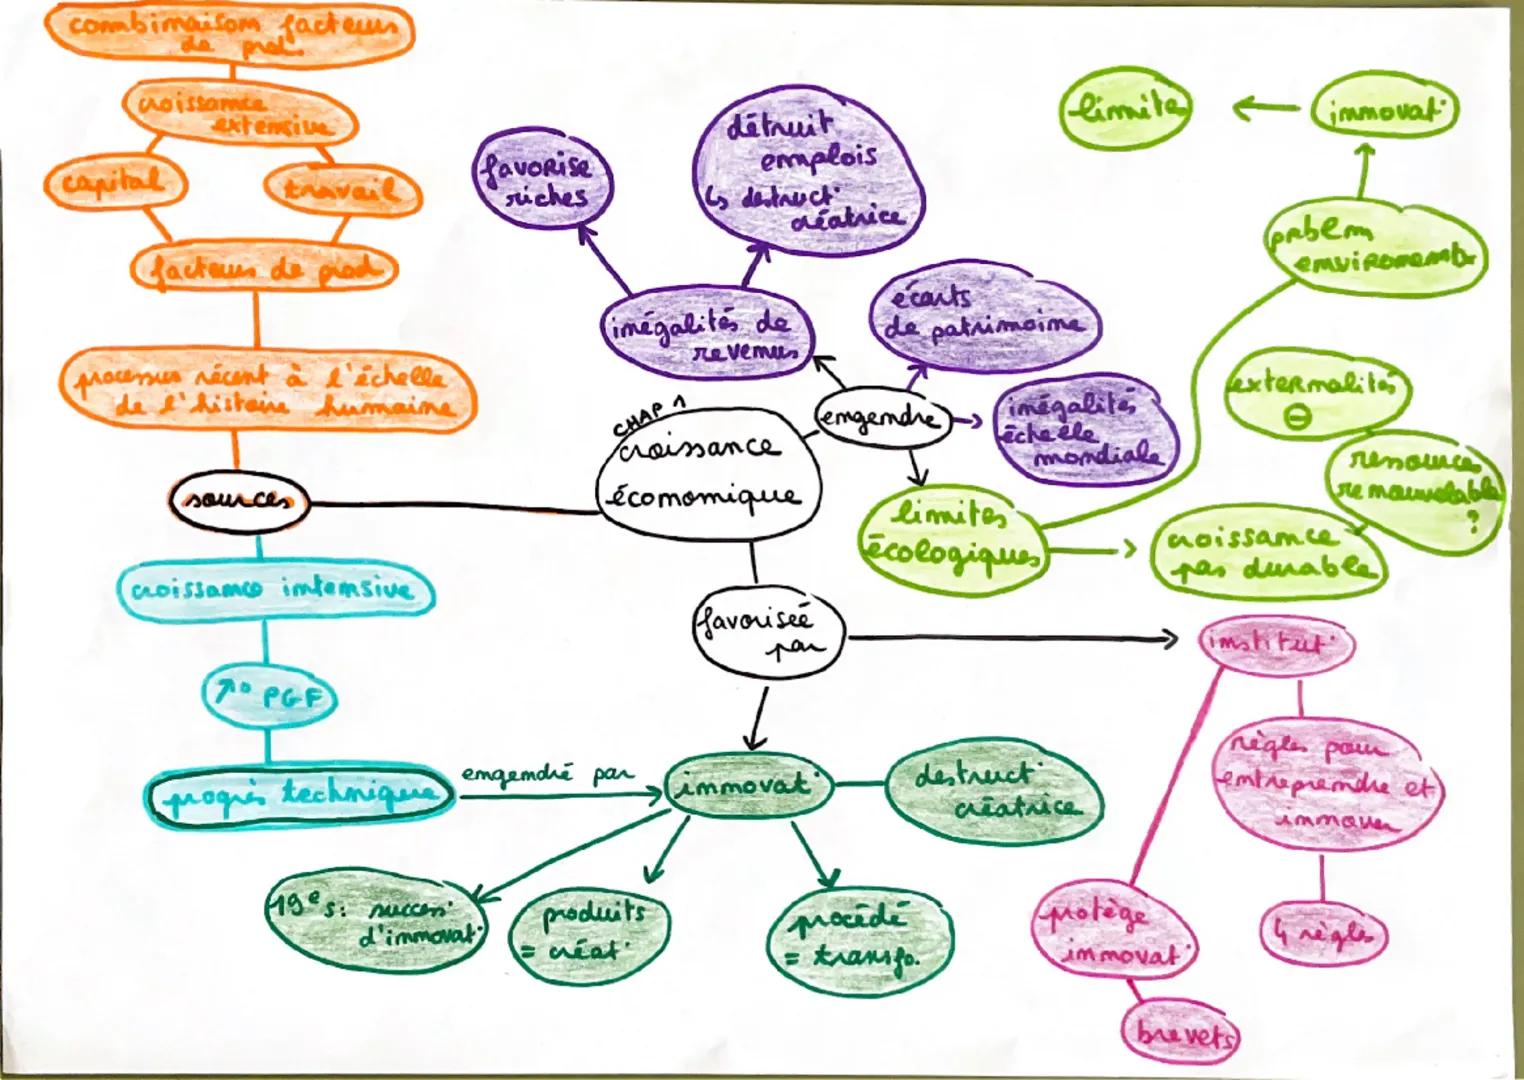 combinaison facteurs
de prod.
croissance
extensive
capital
travail
facteurs de prod
processus récent à l'échelle
de l'histoire humaine
sources
croissance intensive
↗° PGF
progrès technique
engendré par
CHAP 1
croissance
économique
engendre
inégalités de
revenus
favorise
riches
détruit
emplois
↳ destruct°
créatrice
écarts
de patrimoine
inégalités
échelle
mondiale
limites
écologiques
problm
environementx
innovat°
limites
croissance
pas durable
ressources
renouvelables
?
externalités
⊖
favorisée
par
innovat°
destruct°
créatrice
19e s: success°
d'innovat°
produits
= créat°
procédé
= transfo.
institut°
règles pour
entreprendre et
innover
4 règles
protège
innovat°
brevets